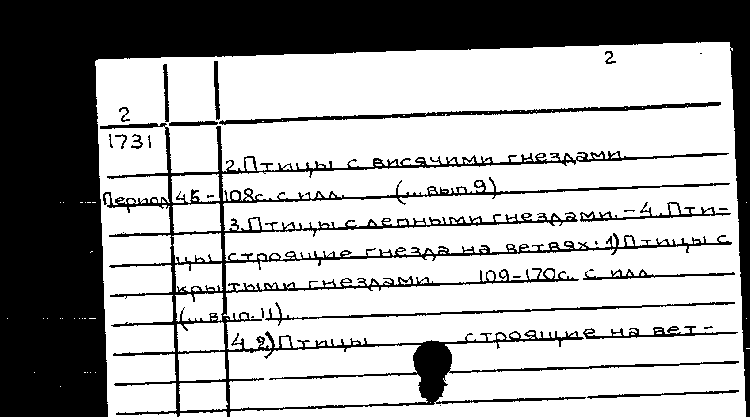 2
2
1731
2.Птицы с висячими гнездами.
Период 45-108с. с илл. (...вып.9)
3.Птицы с лепными гнездами.-4.Пти-
цы строящие гнезда на ветвях:1)Птицы с
крытыми гнездами 109-170с. с илл
(...вып.11).
4.2)Птицы строящие на вет-